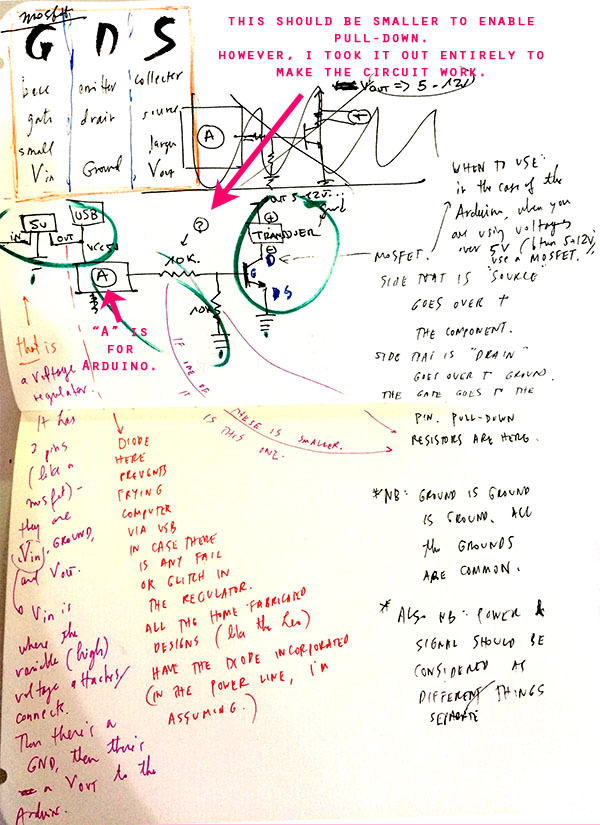 THIS SHOULD BE SMALLER TO ENABLE
PULL-DOWN.
HOWEVER, I TOOK IT OUT ENTIRELY TO
MAKE THE CIRCUIT WORK.
mosfet
G D S
base emitter collecter
gate drain source
small larger
Vin Ground Vout
Vout => 5-12V
A
5V
USB
IN
OUT
VCC 5V
A
10K.
?
10K
OUT 5-12V...
+
TRANSDUCER
D
G
S
"A" IS
FOR
ARDUINO.
WHEN TO USE:
in the case of the
Arduino, when you
are using voltages
over 5V (then 5-12V,
use a MOSFET."
MOSFET.
SIDE THAT IS "SOURCE"
GOES OVER T
THE COMPONENT.
SIDE THAT IS "DRAIN"
GOES OVER T GROUND.
THE GATE GOES TO THE
PIN. PULL-DOWN
RESISTORS ARE HERE.
IF ONE OF THESE IS SMALLER.
IT IS THIS ONE.
that is
a voltage
regulator.
It has
3 pins
(like a
mosfet)-
they are
Vin, GROUND,
and Vout.
Vin is
where the
variable (high)
voltage attaches/
connects.
Then there's a
GND, then there's
a VOUT to the
Arduino.
DIODE
HERE
PREVENTS
FRYING
COMPUTER
VIA USB
IN CASE THERE
IS ANY FAIL
OR GLITCH IN
THE REGULATOR.
ALL THE HOME-FABRICATED
DESIGNS (like the
HAVE THE DIODE INCORPORATED
(IN THE POWER LINE, I'M
ASSUMING.)
*NB: GROUND IS GROUND
IS GROUND. ALL
the GROUNDS
ARE COMMON.
* ALSO NB: POWER &
SIGNAL SHOULD BE
CONSIDERED AS
DIFFERENT THINGS
SEPARATE